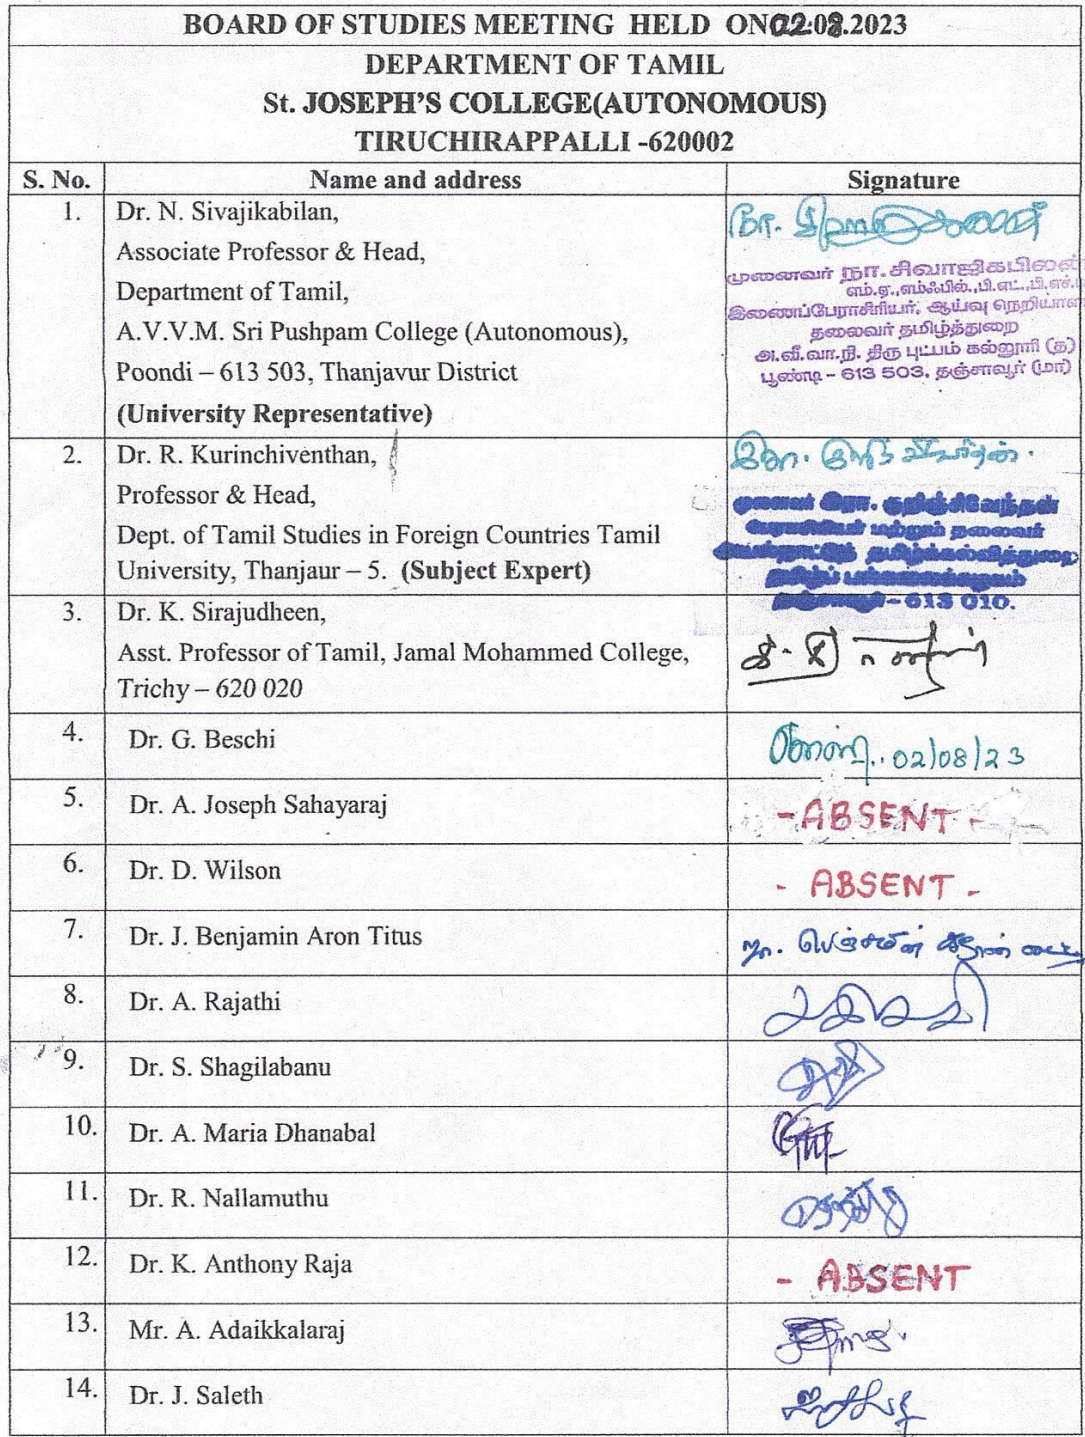 BOARD OF STUDIES MEETING HELD ON 02.08.2023
DEPARTMENT OF TAMIL
St. JOSEPH'S COLLEGE(AUTONOMOUS)
TIRUCHIRAPPALLI -620002
S. No. Name and address Signature
1. Dr. N. Sivajikabilan,
Associate Professor & Head,
Department of Tamil,
A.V.V.M. Sri Pushpam College (Autonomous),
Poondi – 613 503, Thanjavur District
(University Representative)
முனைவர் நா. சிவாஜிகபிலன்
எம்.ஏ.,எம்ஃபில்.,பி.எட்.,பி.எச்.
இணைப்பேராசிரியர், ஆய்வு நெறியாள
தலைவர் தமிழ்த்துறை
அ.வீ.வா.நி. திரு புட்பம் கல்லூரி (த)
பூண்டி – 613 503, தஞ்சாவூர் (மா)
2. Dr. R. Kurinchiventhan,
Professor & Head,
Dept. of Tamil Studies in Foreign Countries Tamil
University, Thanjaur – 5. (Subject Expert)
முனைவர் இரா. குறிஞ்சிவேந்தன்
பேராசிரியர் மற்றும் தலைவர்
அயல்நாட்டுத் தமிழ்க்கல்வித்துறை
தமிழ்ப் பல்கலைக்கழகம்
தஞ்சாவூர் – 613 010.
3. Dr. K. Sirajudheen,
Asst. Professor of Tamil, Jamal Mohammed College,
Trichy – 620 020
4. Dr. G. Beschi 02/08/23
5. Dr. A. Joseph Sahayaraj - ABSENT -
6. Dr. D. Wilson - ABSENT -
7. Dr. J. Benjamin Aron Titus
8. Dr. A. Rajathi
9. Dr. S. Shagilabanu
10. Dr. A. Maria Dhanabal
11. Dr. R. Nallamuthu
12. Dr. K. Anthony Raja - ABSENT
13. Mr. A. Adaikkalaraj
14. Dr. J. Saleth